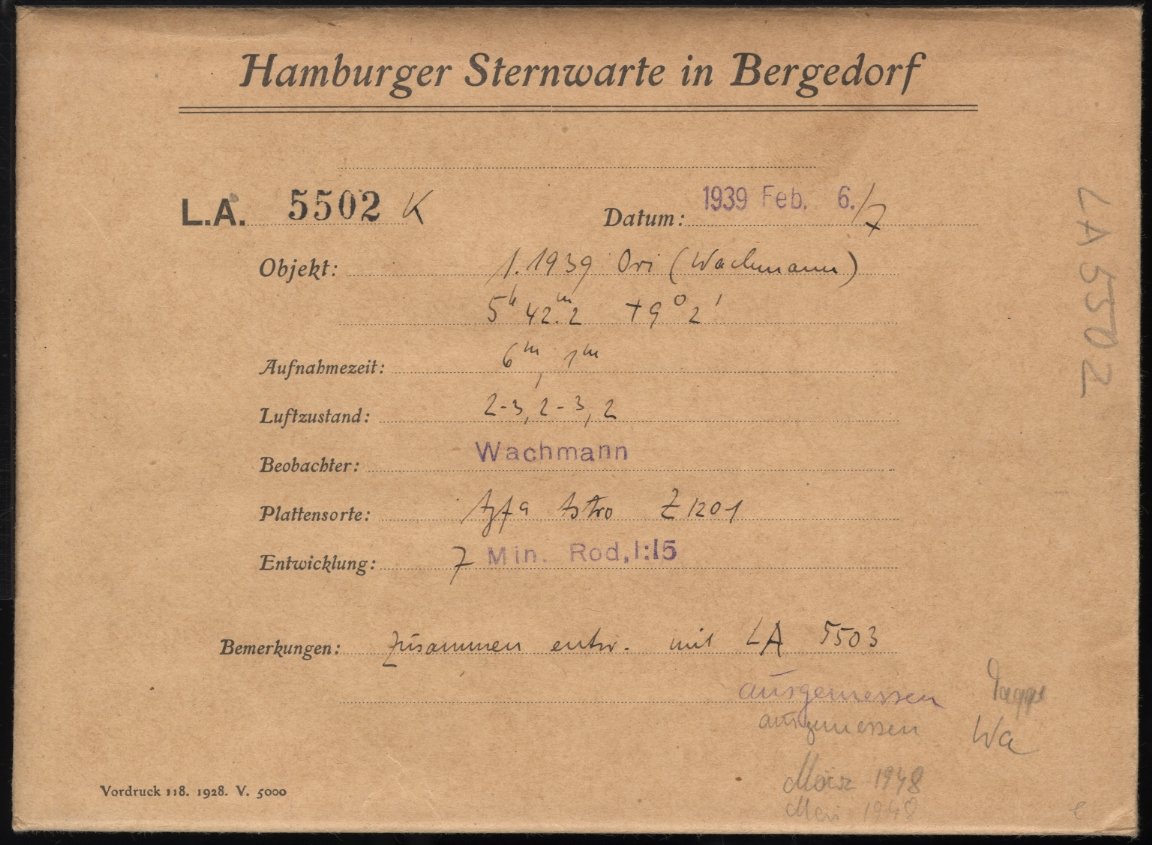 Hamburger Sternwarte in Bergedorf
L.A. 5502 K
Datum: 1939 Feb. 6./7
Objekt: 1.1939 Ori (Wachmann)
5ʰ 42ᵐ.2 +9° 2'
Aufnahmezeit: 6ᵐ, 1ᵐ
Luftzustand: 2-3, 2-3, 2
Beobachter: Wachmann
Plattensorte: Agfa Astro Z 1201
Entwicklung: 7 Min. Rod, 1:15
Bemerkungen: Zusammen entw. mit LA 5503
ausgemessen
ausgemessen Wa
März 1948
Mai 1948
Vordruck 118. 1928. V. 5000
LA 5502